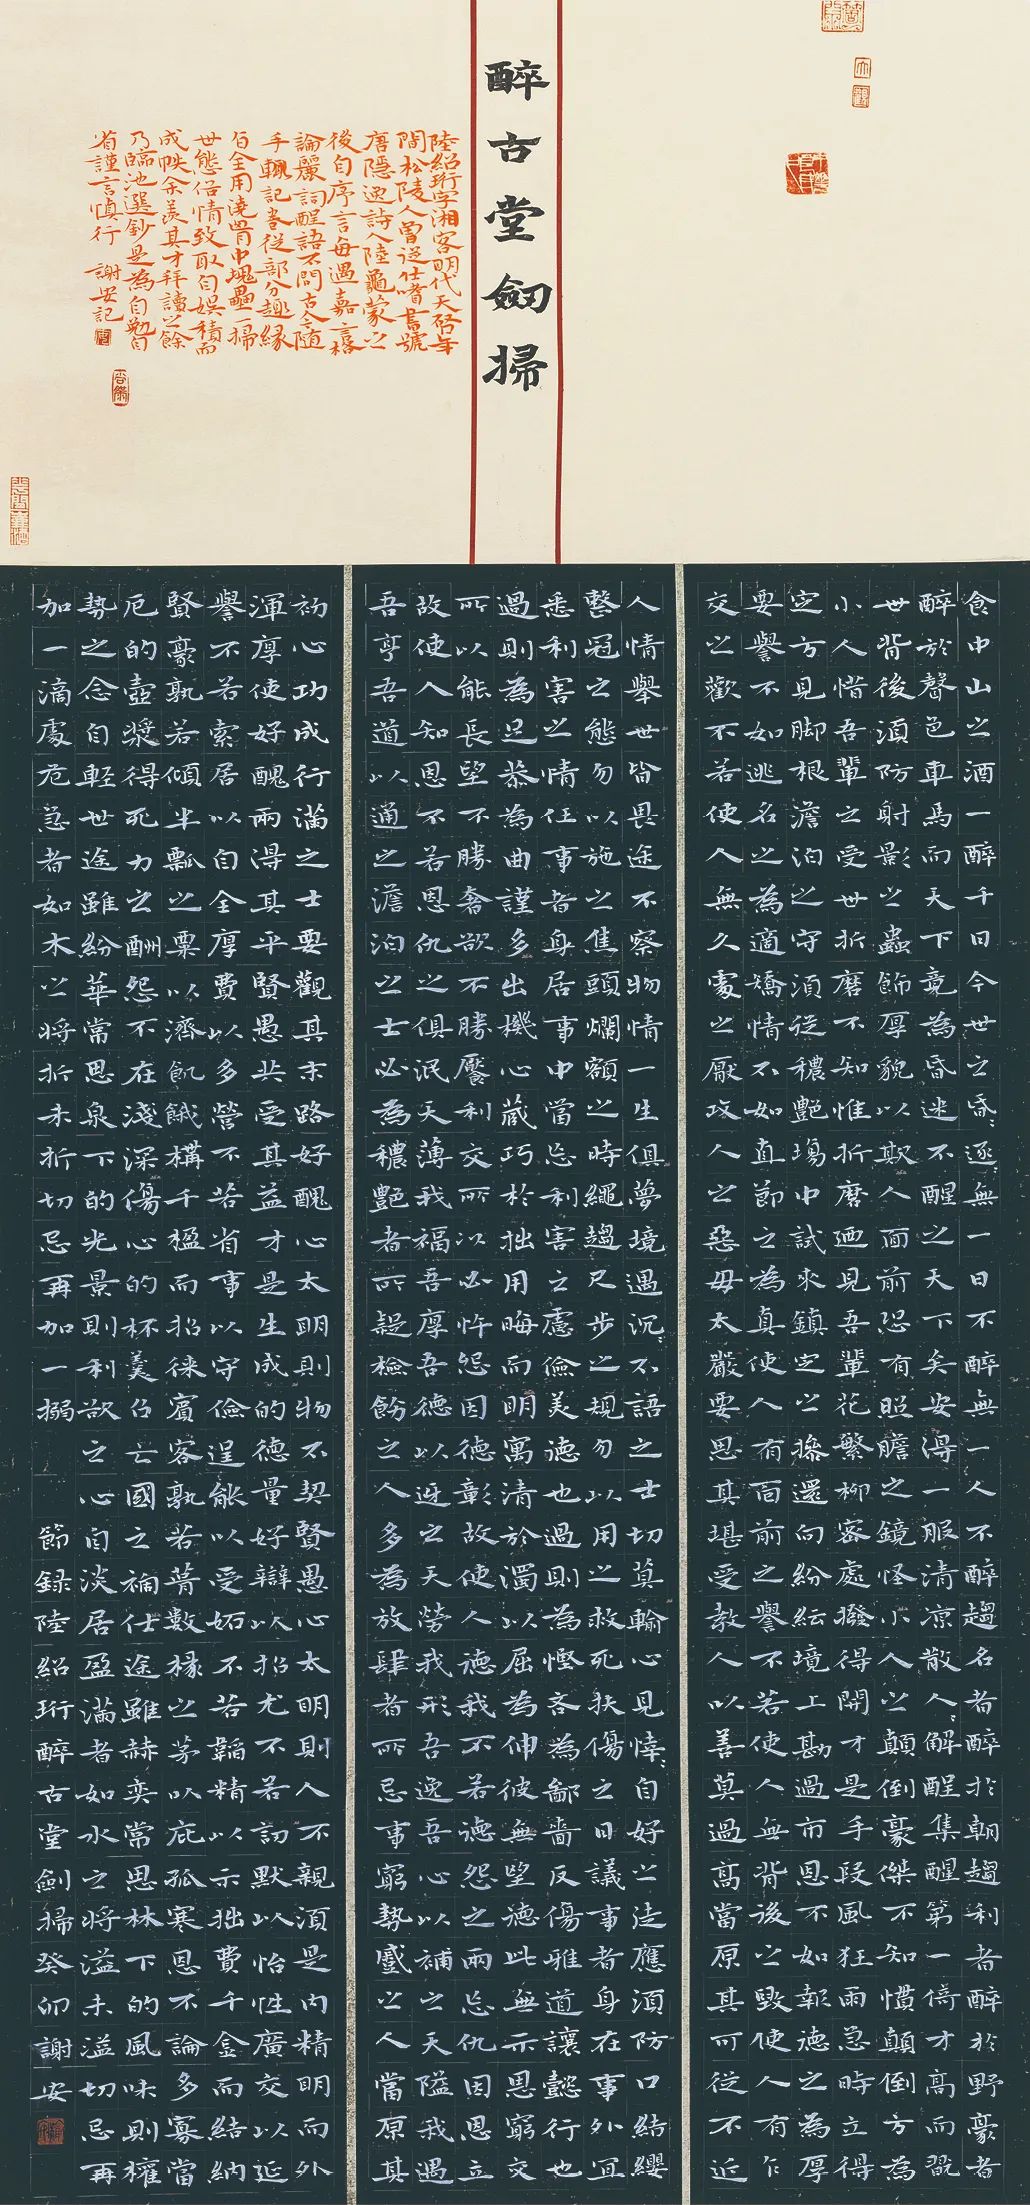 醉古堂劒掃
陸紹珩字湘客明代天啓年
間松陵人曾從仕嗜書號
唐隱逸詩人陸龜蒙之
後自序言每遇嘉言格
論麗詞醒語不問古今隨
手輒記卷從部分趣緣
旨全用澆胷中塊壘一掃
世態俗情致取自娛積而
成帙余羨其才拜讀之餘
乃臨池選鈔是為自勉自
省謹言慎行 謝安記
食中山之酒一醉千日今世之昏〻逐〻無一日不醉無一人不醉趨名者醉於朝趨利者醉於野豪者
醉於聲色車馬而天下竟為昏迷不醒之天下矣安得一服清凉散人〻解酲集醒第一倚才高而翫
世背後須防射影之蟲飾厚貌以欺人面前恐有照膽之鏡怪小人之顛倒豪傑不知慣顛倒方為
小人惜吾輩之受世折磨不知惟折磨廼見吾輩花繁柳密處撥得開才是手段風狂雨急時立得
定方見脚根澹泊之守須從穠艷場中試來鎮定之操還向紛紜境上勘過市恩不如報德之為厚
要譽不如逃名之為適矯情不如直節之為真使人有面前之譽不若使人無背後之毀使人有乍
交之歡不若使人無久處之厭攻人之惡毋太嚴要思其堪受教人以善莫過高當原其可從不近
人情舉世皆畏途不察物情一生俱夢境遇沉〻不語之士切莫輸心見悻〻自好之徒應須防口結纓
整冠之態勿以施之焦頭爛額之時繩趨尺步之規勿以用之救死扶傷之日議事者身在事外宜
悉利害之情任事者身居事中當忘利害之慮儉美德也過則為慳吝為鄙嗇反傷雅道讓懿行也
過則為足恭為曲謹多出機心藏巧於拙用晦而明寓清於濁以屈為伸彼無望德此無示恩窮交
所以能長望不勝奢欲不勝饜利交所以必忤怨因德彰故使人德我不若德怨之兩忘仇因恩立
故使人知恩不若恩仇之俱泯天薄我福吾厚吾德以迓之天勞我形吾逸吾心以補之天隘我遇
吾亨吾道以通之澹泊之士必為穠艷者所疑檢飭之人多為放肆者所忌事窮勢蹙之人當原其
初心功成行滿之士要觀其末路好醜心太明則物不契賢愚心太明則人不親須是内精明而外
渾厚使好醜兩得其平賢愚共受其益才是生成的德量好辯以招尤不若訒默以怡性廣交以延
譽不若索居以自全厚費以多營不若省事以守儉逞能以受妬不若韜精以示拙費千金而結納
賢豪孰若傾半瓢之粟以濟飢餓構千楹而招徠賓客孰若葺數椽之茅以庇孤寒恩不論多寡當
厄的壺漿得死力之酬怨不在淺深傷心的杯羹召亡國之禍仕途雖赫奕常思林下的風味則權
勢之念自輕世途雖紛華常思泉下的光景則利欲之心自淡居盈滿者如水之將溢未溢切忌再
加一滴處危急者如木之將折未折切忌再加一搦 節録陸紹珩醉古堂劍掃癸卯謝安